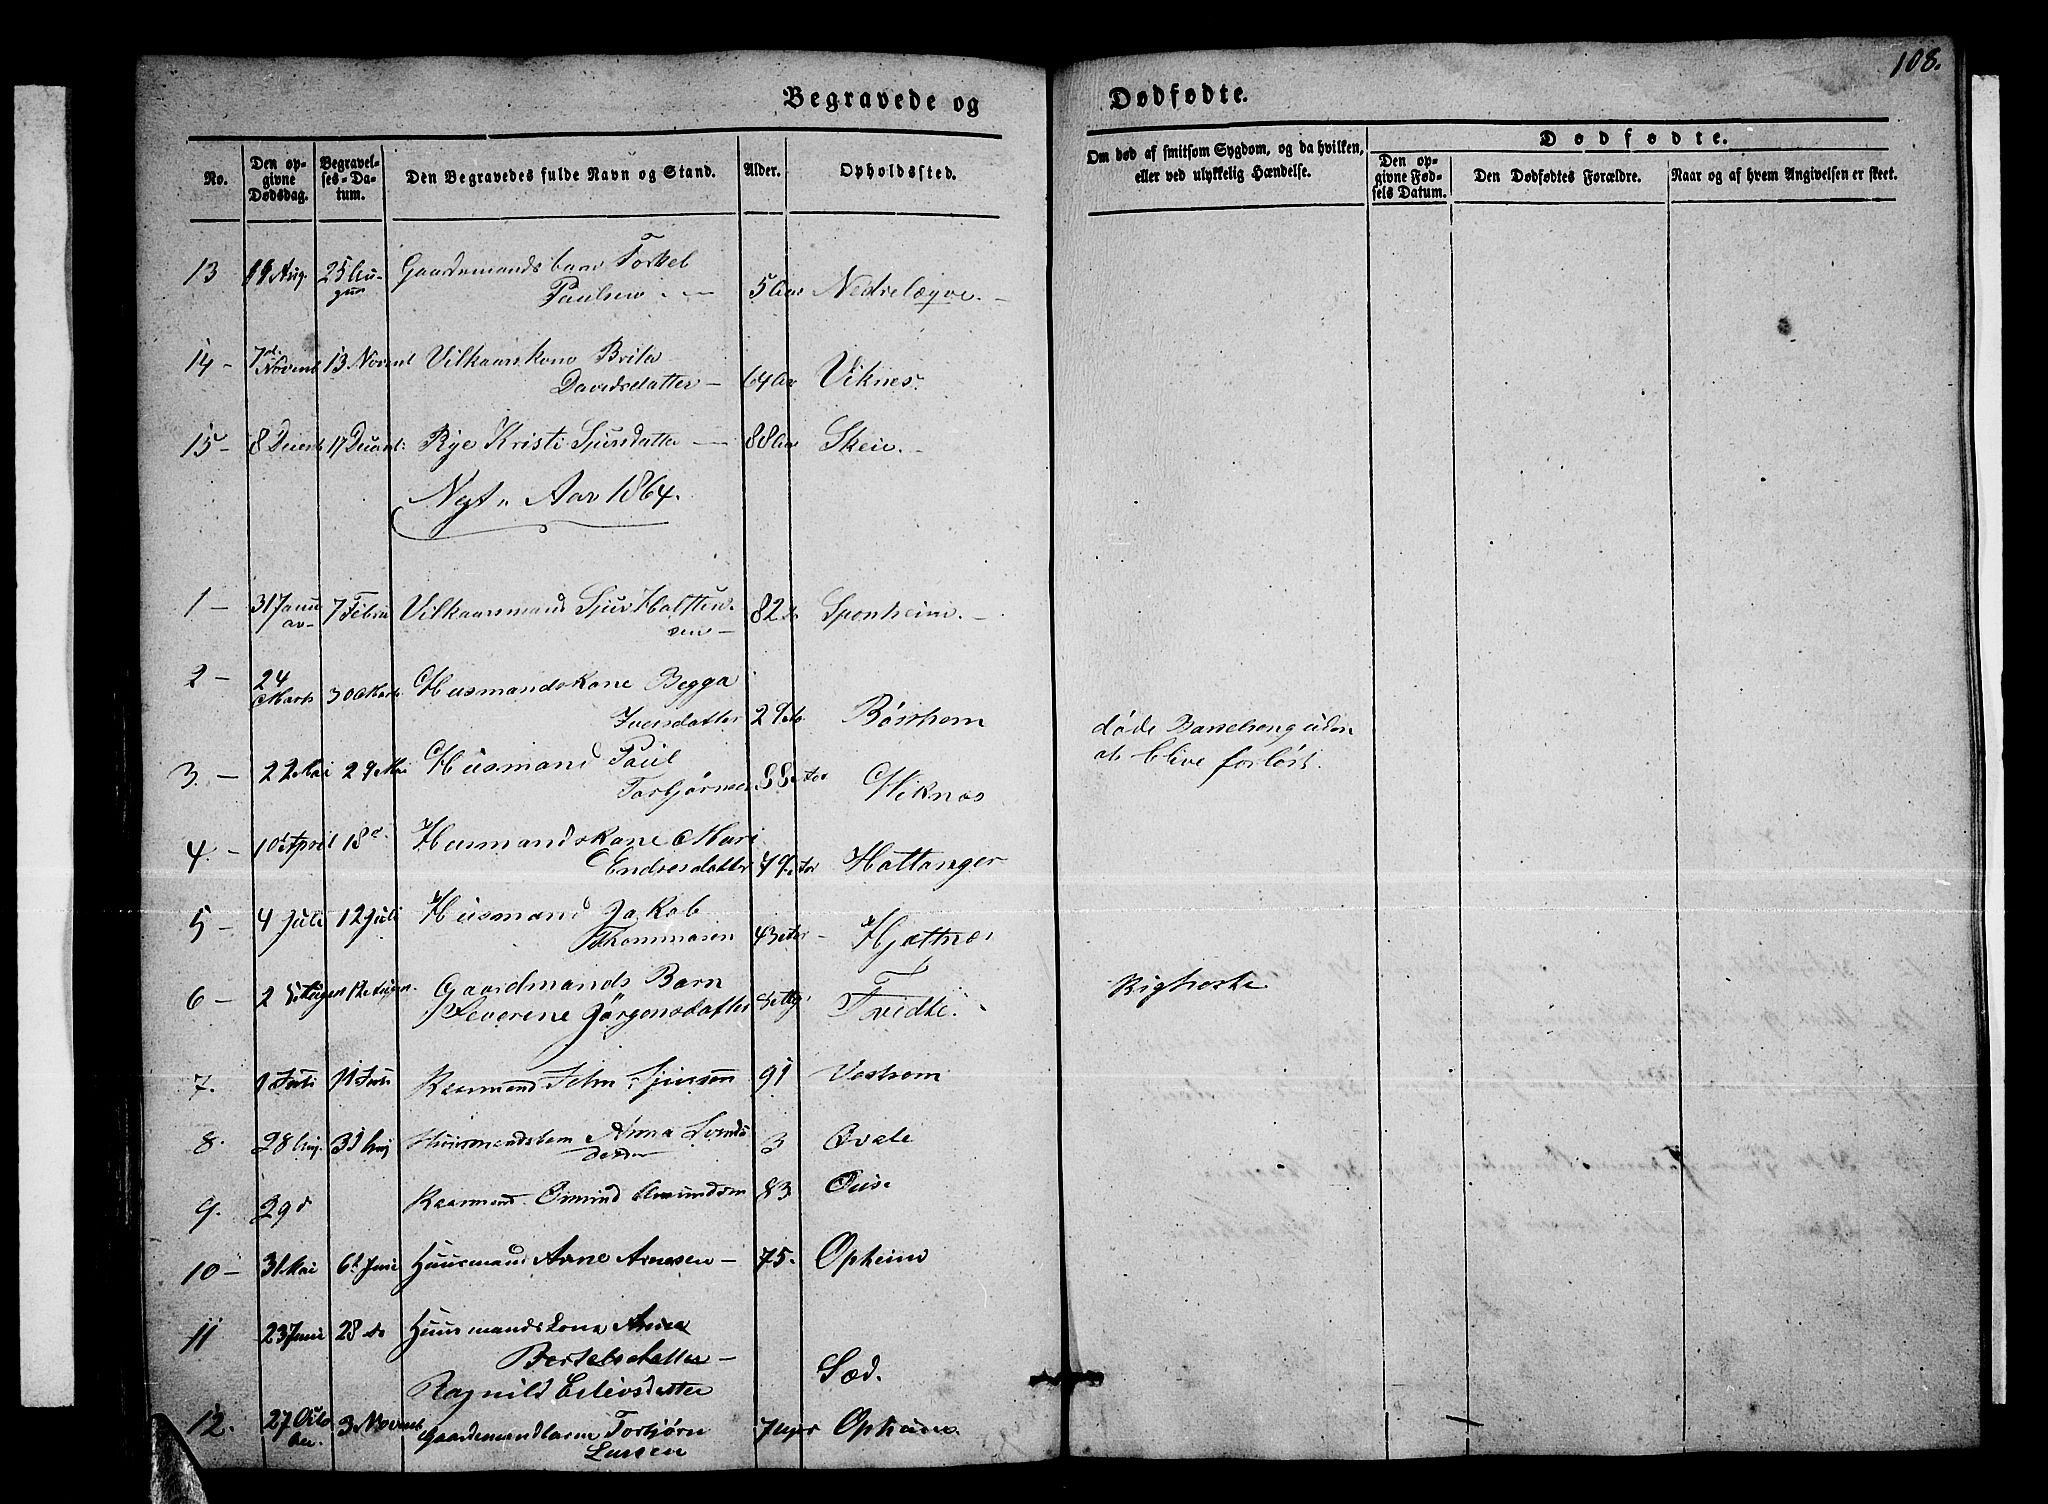 108.
Begravede og Dødfødte.
No. Den opgivne Dødsdag. Begravelses-Datum. Den Begravedes fulde Navn og Stand. Alder. Opholdssted. Om død af smitsom Sygdom, og da hvilken, eller ved ulykkelig Hændelse. Dødfødte.
Den opgivne Fødsels Datum. Den Dødfødtes Forældre. Naar og af hvem Angivelsen er skeet.
13 Aug. 25 Au-
gust Gaardsmandsbarn Torkel
Paulsen 5 Aar Nedrelægve.
14 - 7de Novemb 13 Novemb Vilkaarskone Brita
Davidsdatter - 64 Aar Viknes.
15 - 8 Decemb 17 Decemb: Kristi Sjursdatter 88 Aar Skeie.
Nyt Aar 1864.
1 - 31 Janu
ar- 7 Febru Vilkaarsmand Sjur Halsten
sen - 82 do Sponheim.
2 - 24
Marts 30 Marts Husmandskone Begga
Iversdatter 29 do
døde Barselseng uden
at blive forløst.
3. - 22 Mai 29 Mai Husmand Paul
Torbjørnsen Viknes
4. - 10 April 18 d. Husmandskone Mari
Endresdatter 79 Hattanger
5 - 4 Juli 12 Juli Husmand Jakob
Thommasen 43 Hjeltnes
6 - 2 12 Gaardmands Barn
Severene Jørgensdatter Tvidte.
Kighoste
7. 11 Kaarmand John Sjursen 91 Vestrem
8. 28 Aug. 31 Aug Huusmandsbarn Anna Svends
datter 3
9. 29 d Kaarmand Omund Amundsen 83
10 - 31 Mai 6t Juni Huusmand Arne Arnesen - 75. Opheim
11 23 Juni 28 do Huusmandskone Anna
Bertelsdatter -
Sæd.
Ragnild Erlevsdatter
12. 27 Octo
ber. 3 Novemb Gaardsmandbarn Torbjørn
Larsen 7 Opheim.